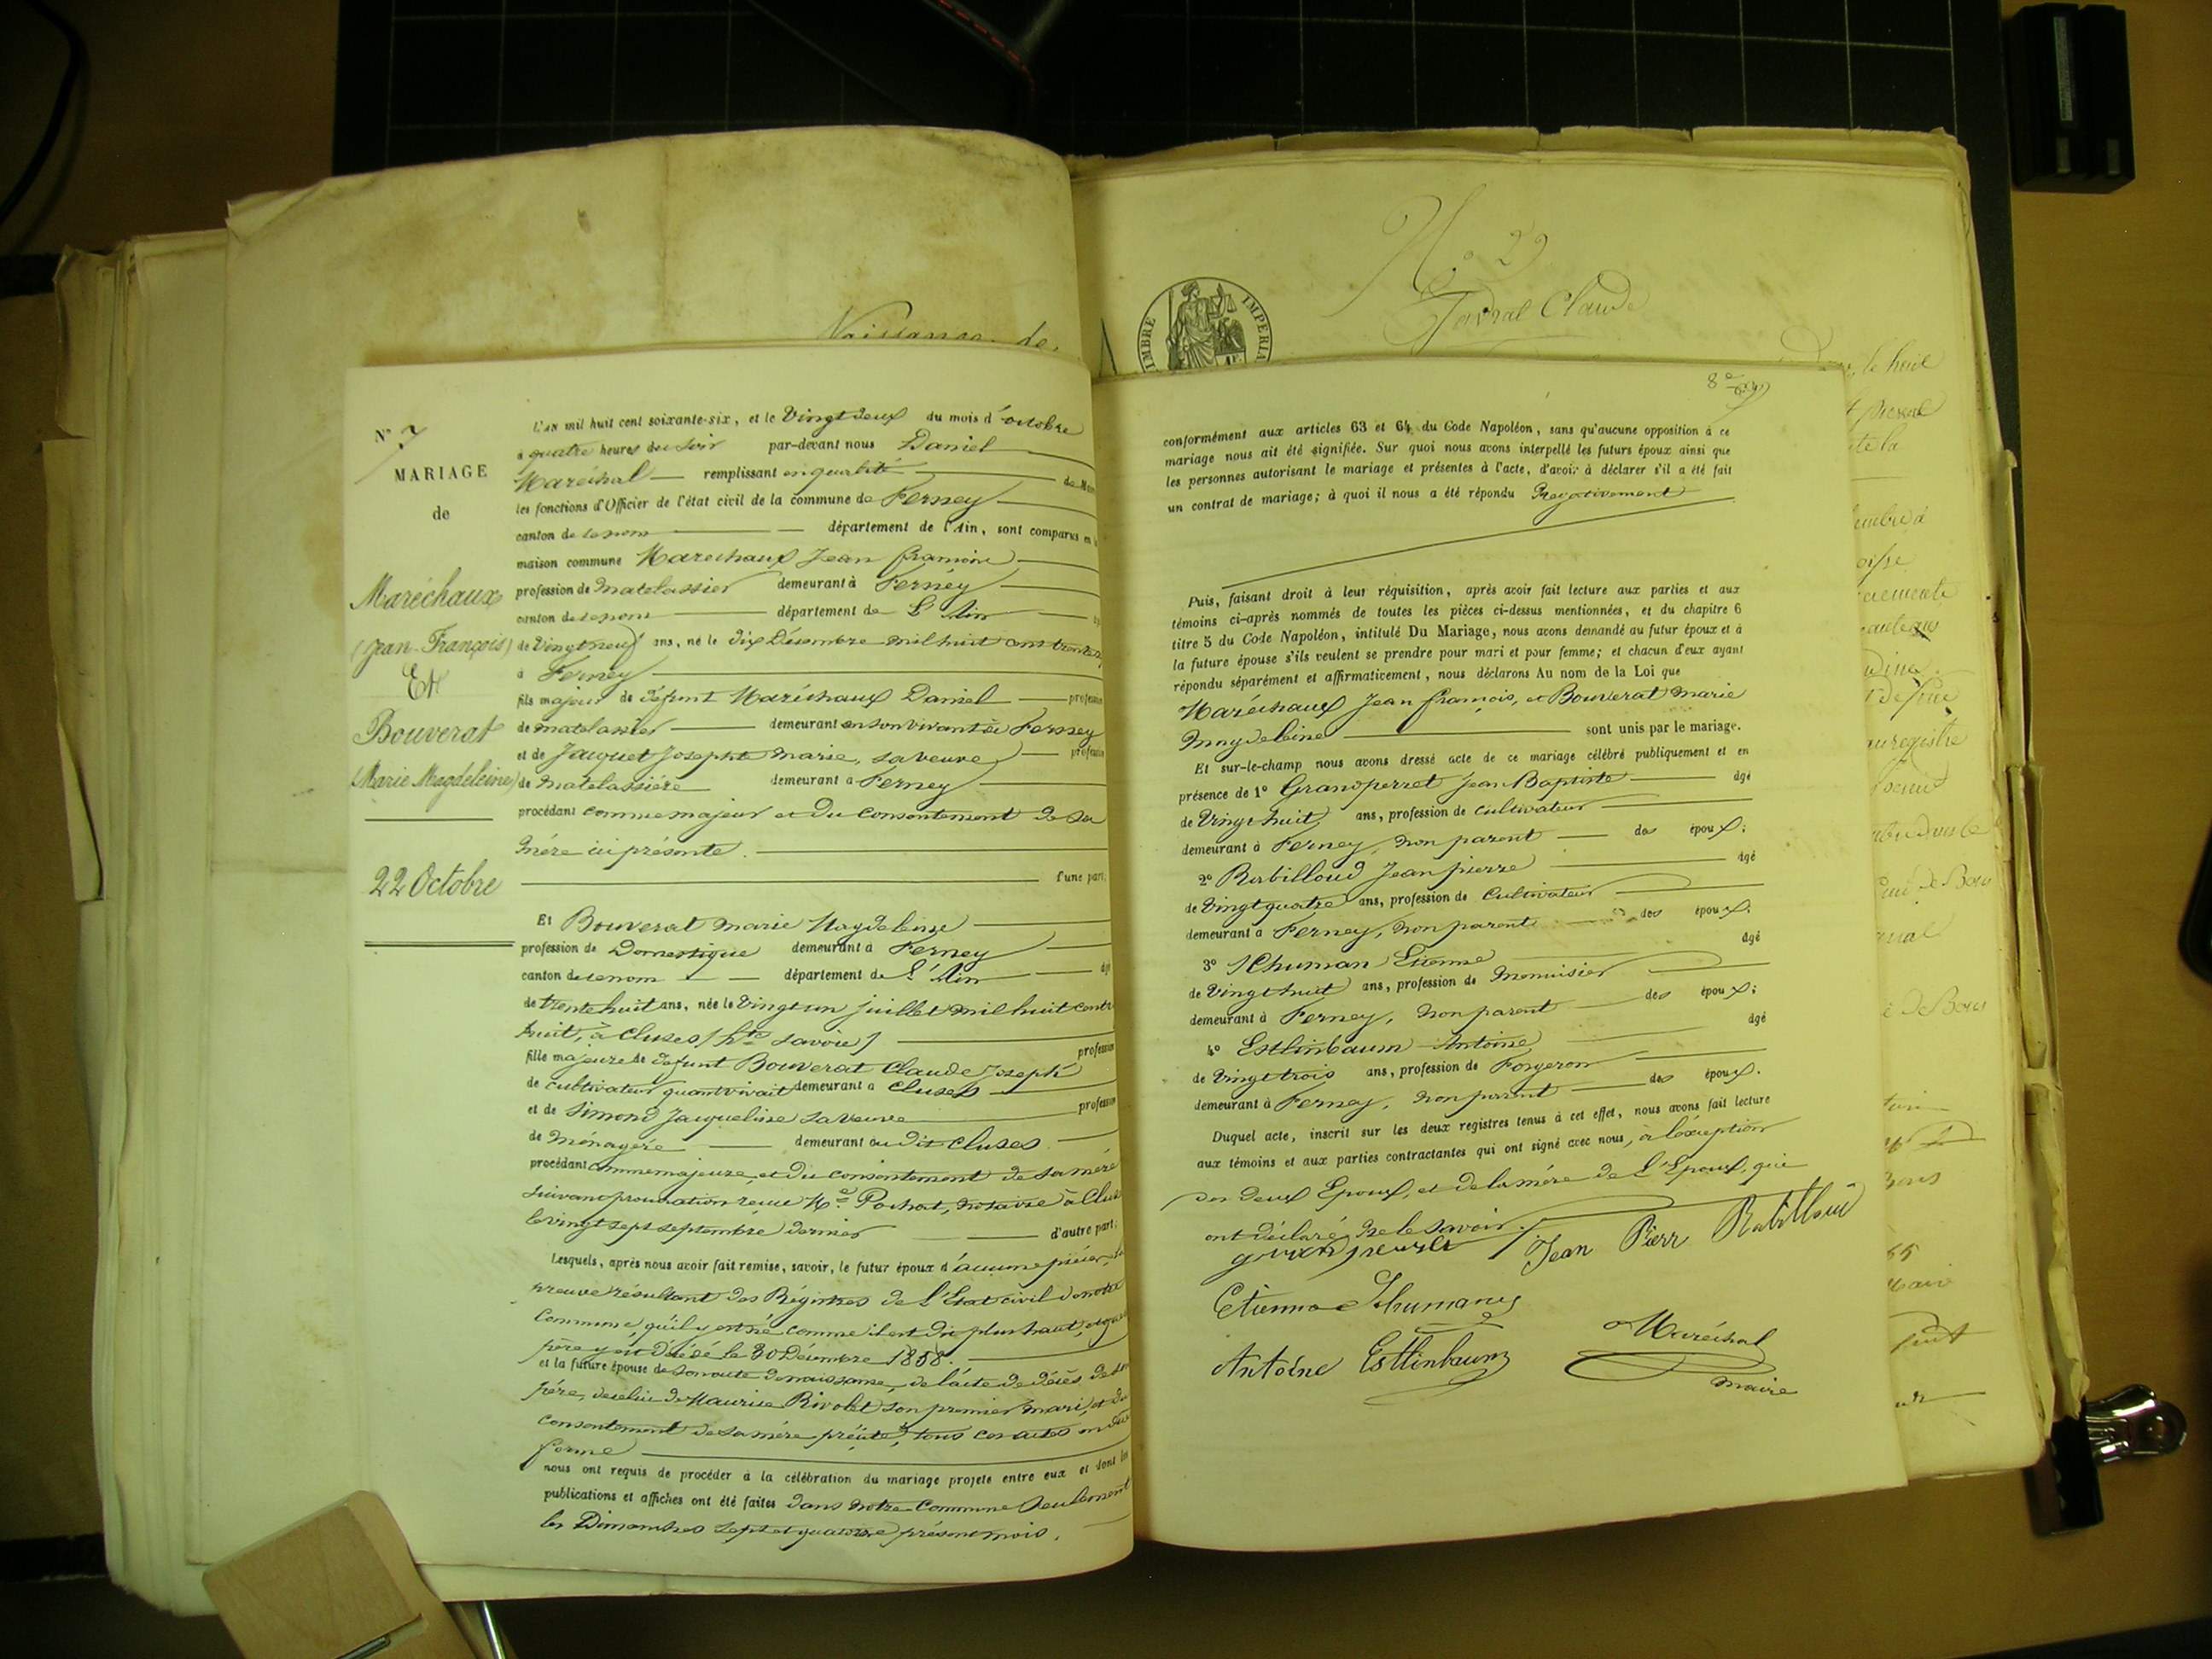 Naissance de
N° 7
MARIAGE
de
Maréchaux
(Jean-François)
Et
Bouverat
(Marie Magdeleine)
22 Octobre
L'an mil huit cent soixante-six, et le Vingt deux du mois d'octobre
à quatre heures du soir par-devant nous Daniel
Maréchal remplissant en qualité de
les fonctions d'Officier de l'état civil de la commune de Ferney
canton de ce nom département de l'Ain, sont comparus en
maison commune Maréchaux Jean françois
profession de matelassier demeurant à Ferney
canton de ce nom département de L'Ain
de Vingt neuf ans, né le dix Décembre mil huit cent trente
à Ferney
fils majeur de défunt Maréchaux Daniel profession
de matelassier demeurant en son vivant à Ferney
et de Jacquet Josephte Marie, sa veuve profession
de Matelassière demeurant à Ferney
procédant comme majeur et du consentement de sa
Mère ici présente.
d'une part;
Et Bouverat Marie Magdeleine
profession de Domestique demeurant à Ferney
canton de ce nom département de L'Ain âgé
de trente huit ans, née le vingt un juillet mil huit cent
huit, à Cluses (hte savoie)
fille majeure de défunt Bouverat Claude Joseph profession
de cultivateur quand vivait demeurant à Cluses
et de Simond Jacqueline sa veuve profession
de Ménagère demeurant au dit Cluses
procédant comme majeure, et du consentement de sa mère
suivant procuration reçue Me Pochat, notaire à
le vingt sept septembre dernier d'autre part;
Lesquels, après nous avoir fait remise, savoir, le futur époux d'aucune pièce,
preuve résultant des Régistres de L'Etat civil de notre
Commune, qu'il y est né comme il est dit plus haut,
père y est décédé le 30 Décembre 1858.
et la future épouse de son acte de naissance, de l'acte de décès de
père, de celui de Maurice Rivolet son premier mari, et du
consentement de sa mère précité, tous ces actes en
forme
nous ont requis de procéder à la célébration du mariage projeté entre eux et dont les
publications et affiches ont été faites dans notre Commune seulement
les Dimanches sept et quatorze présent mois.
N° 29
Claude
TIMBRE IMPERIAL
conformément aux articles 63 et 64 du Code Napoléon, sans qu'aucune opposition à ce
mariage nous ait été signifiée. Sur quoi nous avons interpellé les futurs époux ainsi que
les personnes autorisant le mariage et présentes à l'acte, d'avoir à déclarer s'il a été fait
un contrat de mariage; à quoi il nous a été répondu Negativement
Puis, faisant droit à leur réquisition, après avoir fait lecture aux parties et aux
témoins ci-après nommés de toutes les pièces ci-dessus mentionnées, et du chapitre 6
titre 5 du Code Napoléon, intitulé Du Mariage, nous avons demandé au futur époux et à
la future épouse s'ils veulent se prendre pour mari et pour femme; et chacun d'eux ayant
répondu séparément et affirmativement, nous déclarons Au nom de la Loi que
Maréchaux Jean françois, et Bouverat Marie
Magdeleine sont unis par le mariage.
Et sur-le-champ nous avons dressé acte de ce mariage célébré publiquement et en
présence de 1° Grandperret Jean Baptiste âgé
de Vingt huit ans, profession de Cultivateur
demeurant à Ferney, non parent des époux;
2° Rabilloud Jean pierre âgé
de Vingt quatre ans, profession de Cultivateur
demeurant à Ferney, non parent des époux;
3° Schuman Etienne âgé
de Vingt huit ans, profession de Menuisier
demeurant à Ferney, non parent des époux;
4° Estlinbaum Antoine âgé
de Vingt trois ans, profession de Forgeron
demeurant à Ferney, non parent des époux.
Duquel acte, inscrit sur les deux registres tenus à cet effet, nous avons fait lecture
aux témoins et aux parties contractantes qui ont signé avec nous, à l'exception
des deux Epoux, et de la mère de L'Epoux, qui
ont déclaré ne le savoir.
Jean Pierr Rabilloud
Etienne Schumann
Antoine Estlinbaum
Maréchal
maire